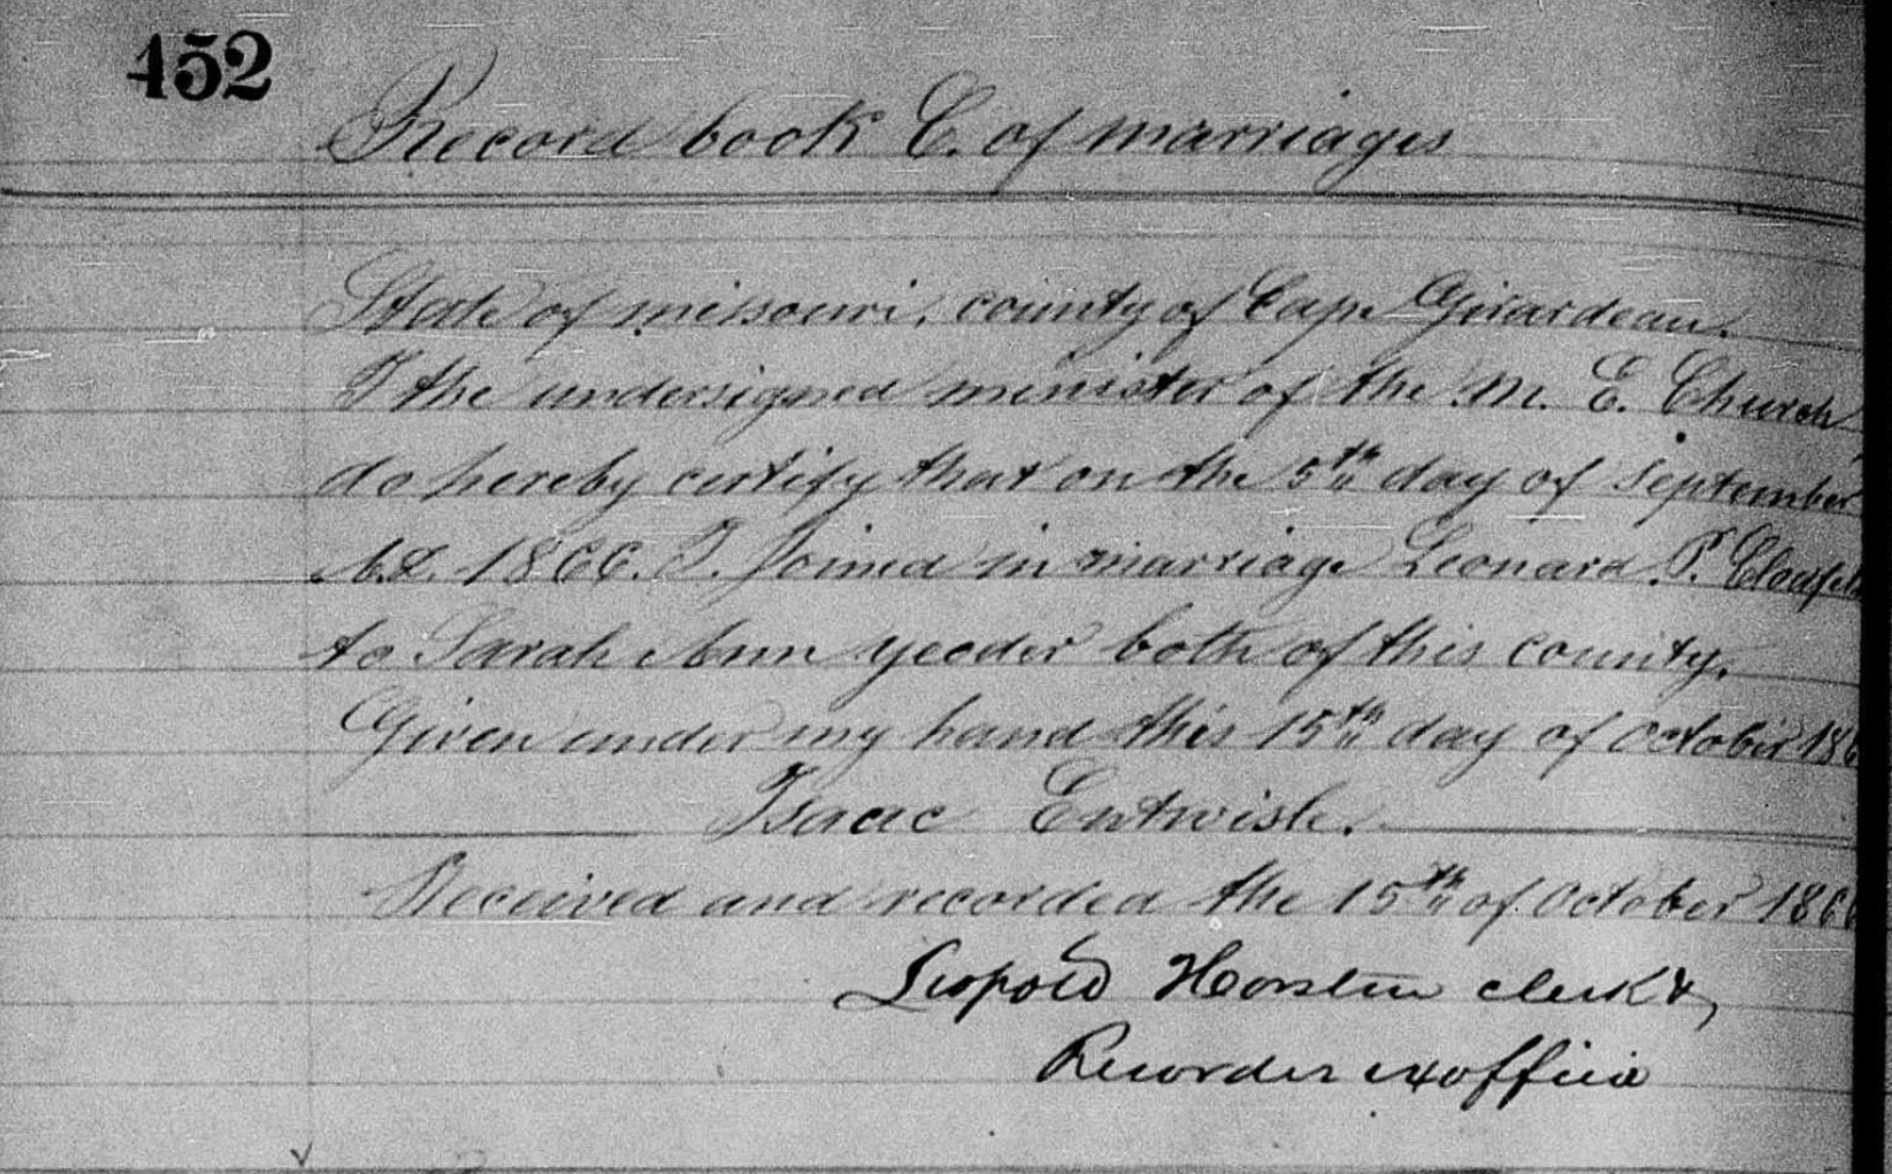 452
Record book C. of marriages
State of missouri, county of Cape Girardeau.
I the undersigned minister of the M. E. Church
do hereby certify that on the 5th day of September
A.D. 1866. I. Joined in marriage Leonard P.
to Sarah Ann yeoder both of this county.
Given under my hand this 15th day of October 186
Isaac Entwisle.
Received and recorded the 15th of October 186
Leopold Horstm clerk &
Recorder exofficio